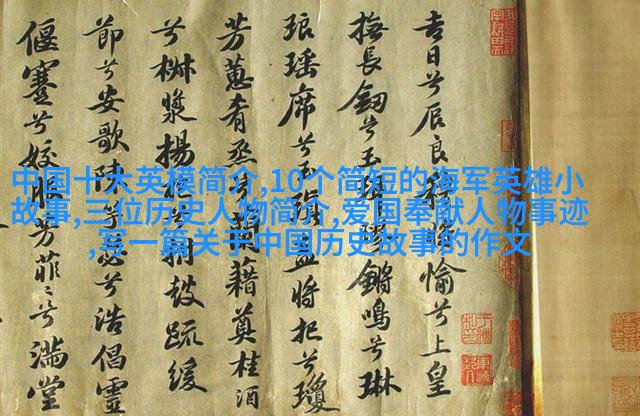 中国十大英模简介,10个简短的海军英雄小
故事,三位历史人物简介,爱国奉献人物事迹
,写一篇关于中国历史故事的作文
吉日兮辰良穆將愉兮上皇
撫長劒兮玉珥璆鏘鳴兮琳
琅瑤席兮玉瑱盍將把兮瓊
芳蕙肴烝兮蘭藉奠桂酒
兮椒漿揚枹兮拊鼓疏緩
節兮安歌陳竽瑟兮浩倡靈
偃蹇兮姣服芳菲々兮滿堂